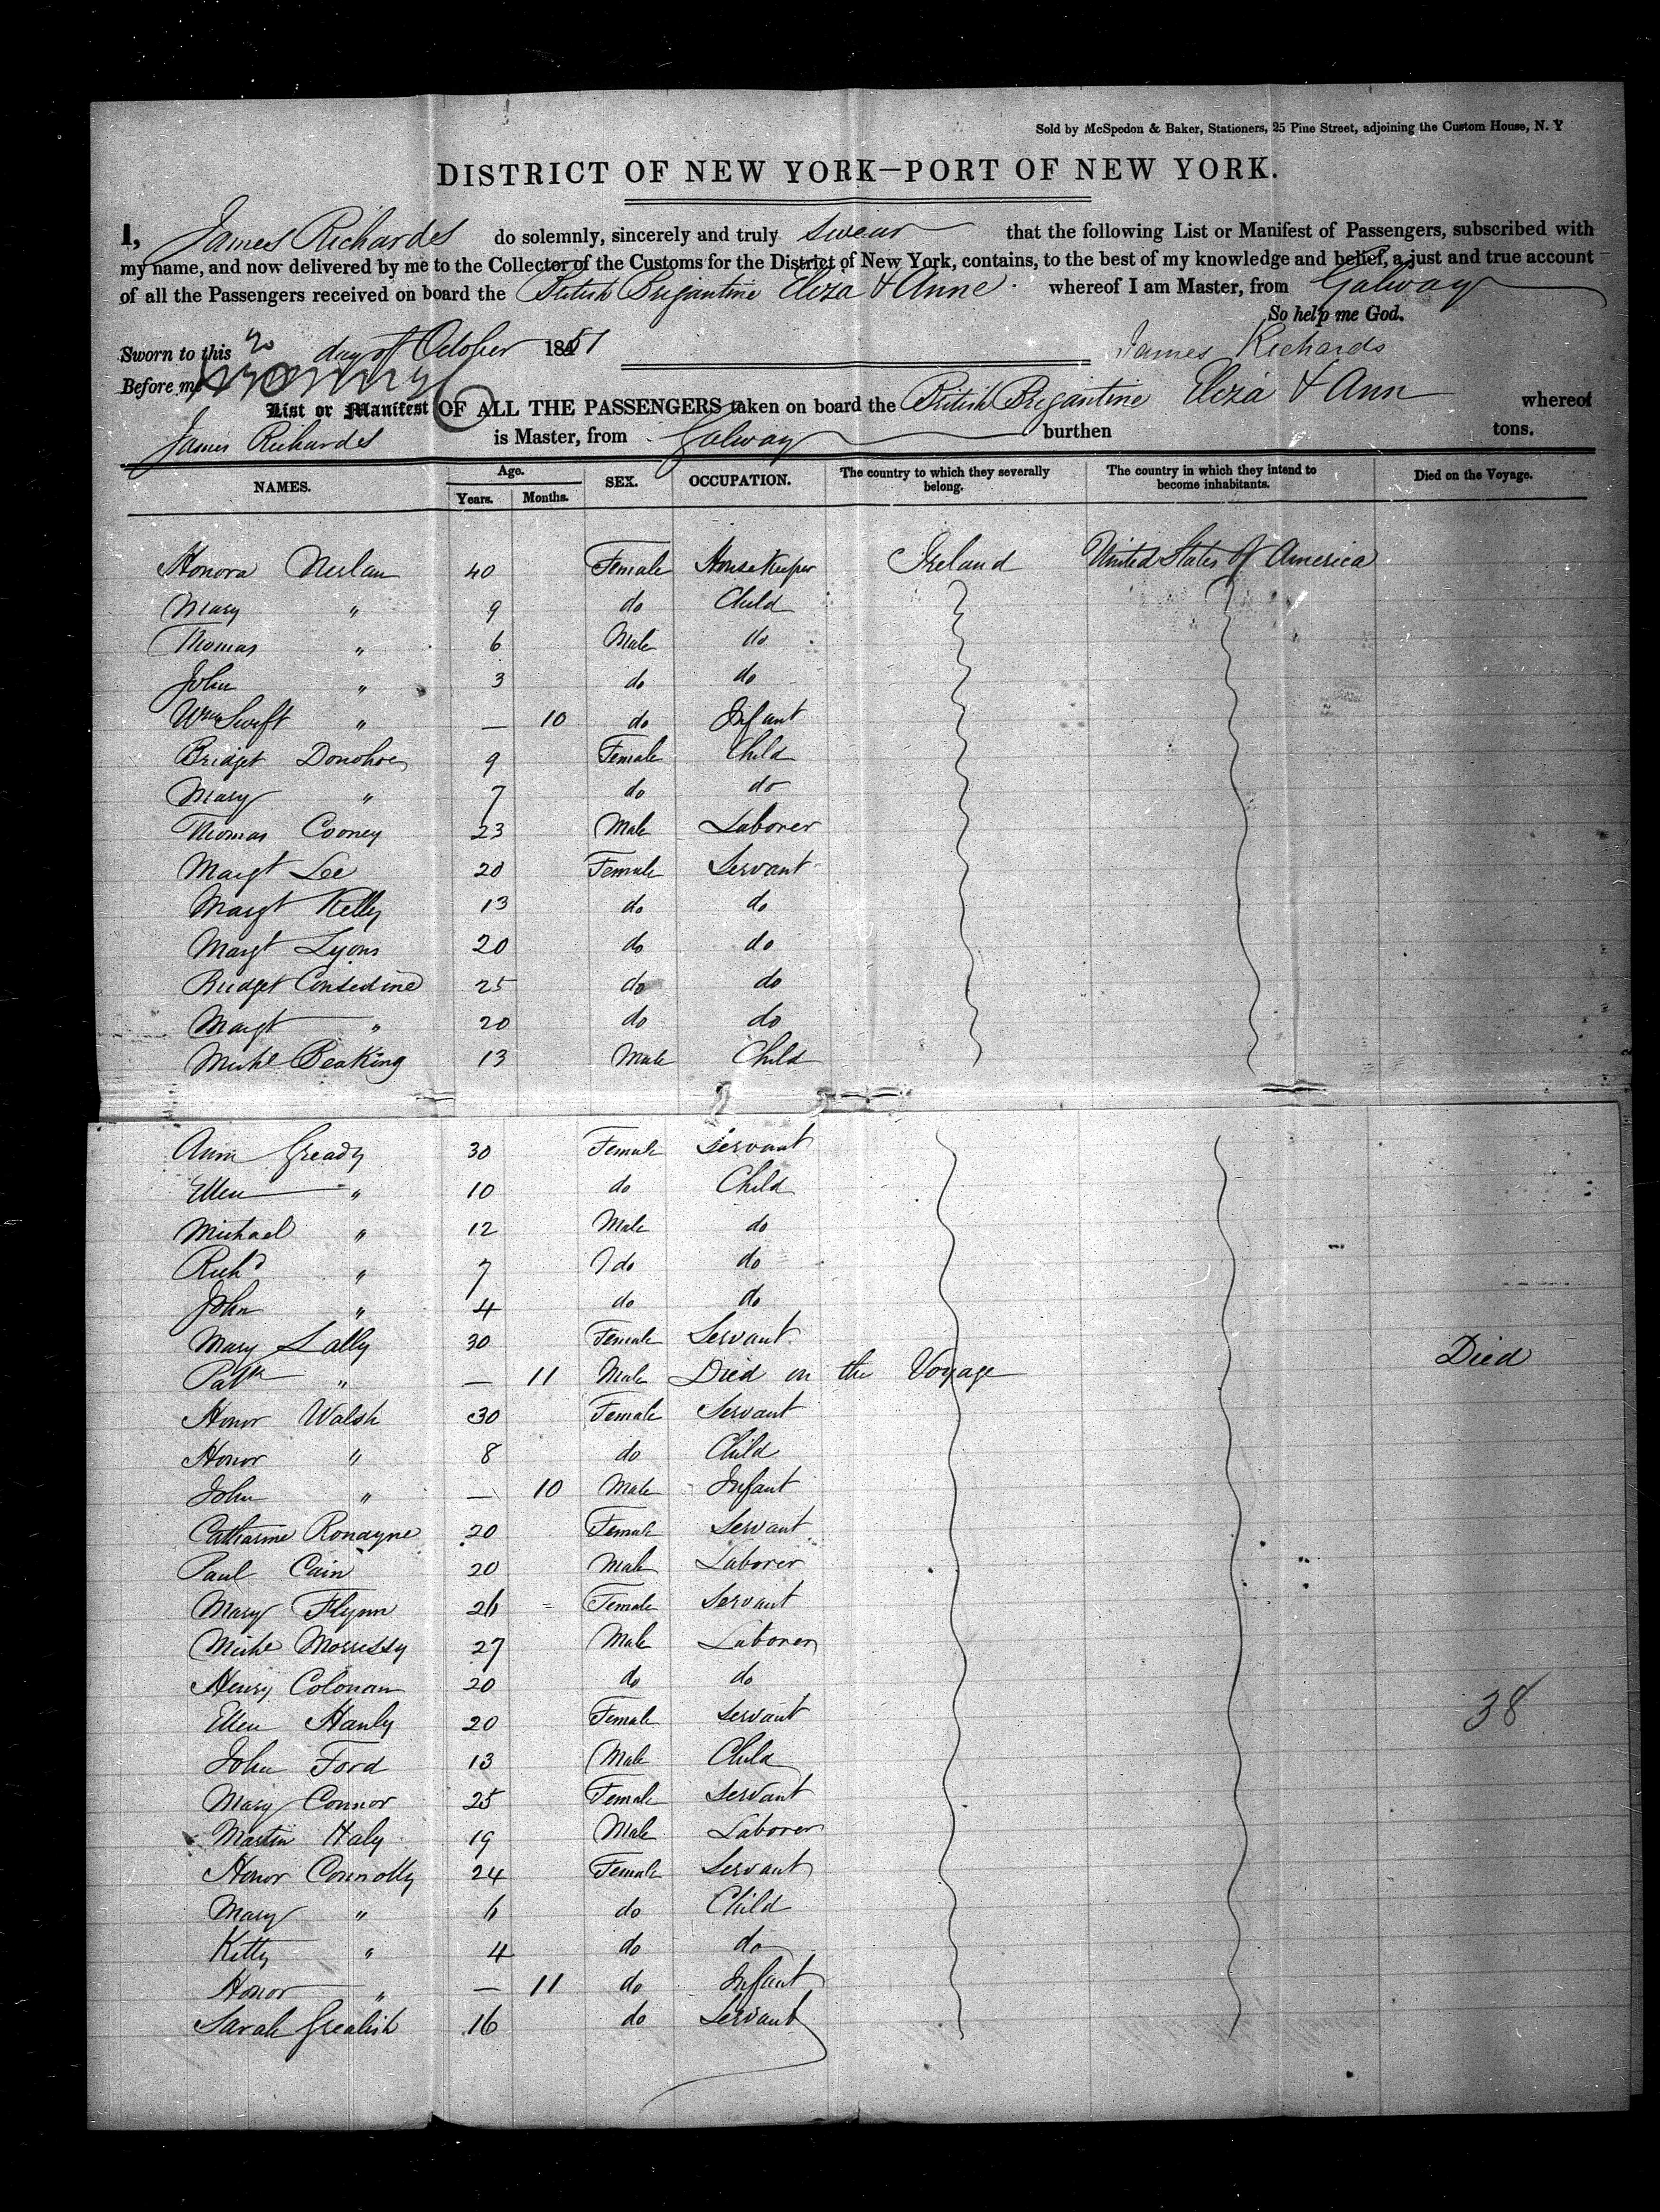 Sold by McSpedon & Baker, Stationers, 25 Pine Street, adjoining the Custom House, N. Y
DISTRICT OF NEW YORK—PORT OF NEW YORK.
I, James Richards do solemnly, sincerely and truly swear that the following List or Manifest of Passengers, subscribed with
my name, and now delivered by me to the Collector of the Customs for the District of New York, contains, to the best of my knowledge and belief, a just and true account
of all the Passengers received on board the British Brigantine Eliza & Anne whereof I am Master, from Galway
So help me God.
Sworn to this 20 day of October 1851 James Richards
Before me
List or Manifest OF ALL THE PASSENGERS taken on board the British Brigantine Eliza & Ann whereof
James Richards is Master, from Galway burthen tons.
NAMES. Age. Years. Months. SEX. OCCUPATION. The country to which they severally belong. The country in which they intend to become inhabitants. Died on the Voyage.
Honora 40 Female House Keeper Ireland United States of America
Mary " 9 do Child
Thomas " 6 Male do
John " 3 do do
Wm Swift " — 10 do Infant
Bridget Donohoe 9 Female Child
Mary " 7 do do
Thomas Cooney 23 Male Laborer
Margt Lee 20 Female Servant
Margt Kelly 13 do do
Margt Lyons 20 do do
Bridget Consedine 25 do do
Margt " 20 do do
Michl 13 Male Child
Ann Gready 30 Female Servant
Ellen " 10 do Child
Michael " 12 Male do
Richd " 7 do do
John " 4 do do
Mary Lally 30 Female Servant
Patk " — 11 Male Died on the Voyage Died
Honor Walsh 30 Female Servant
Honor " 8 do Child
John " — 10 Male Infant
Catharine Ronayne 20 Female Servant
Paul Cain 20 Male Laborer
Mary Flynn 26 Female Servant
Michl Morrissy 27 Male Laborer
Henry Colonan 20 do do
Ellen Hanly 20 Female Servant 38
John Ford 13 Male Child
Mary Connor 25 Female Servant
Martin Haly 19 Male Laborer
Honor Connolly 24 Female Servant
Mary " 6 do Child
Kitty " 4 do do
Honor " — 11 do Infant
Sarah Grealish 16 do Servant